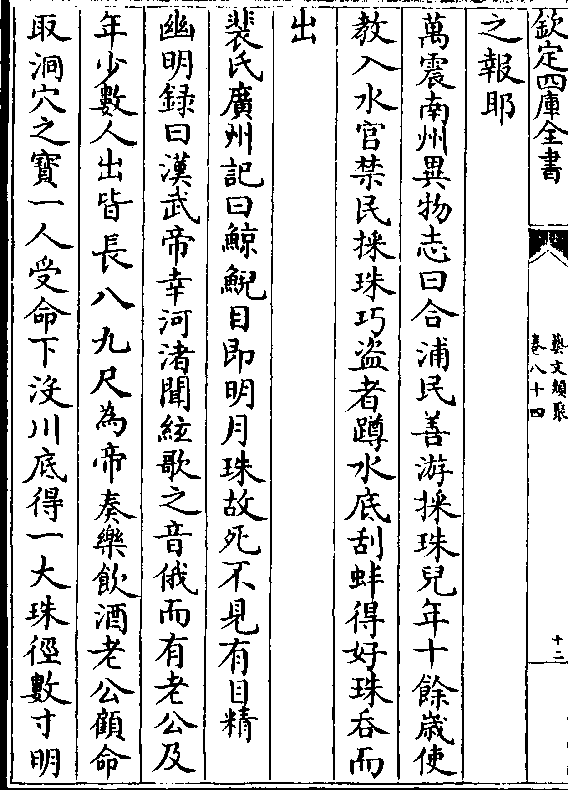 欽定四庫全書
藝文類聚
卷八十四
十二
之報耶
萬震南州異物志曰合浦民善游採珠兒年十餘歳使
教入水官禁民採珠巧盗者蹲水底刮蚌得好珠吞而
出
裴氏廣州記曰鯨鯢目即明月珠故死不見有目精
幽明録曰漢武帝幸河渚聞絃歌之音俄而有老公及
年少數人出皆長八九尺為帝奏樂飲酒老公顧命
取洞穴之寳一人受命下沒川底得一大珠徑數寸明